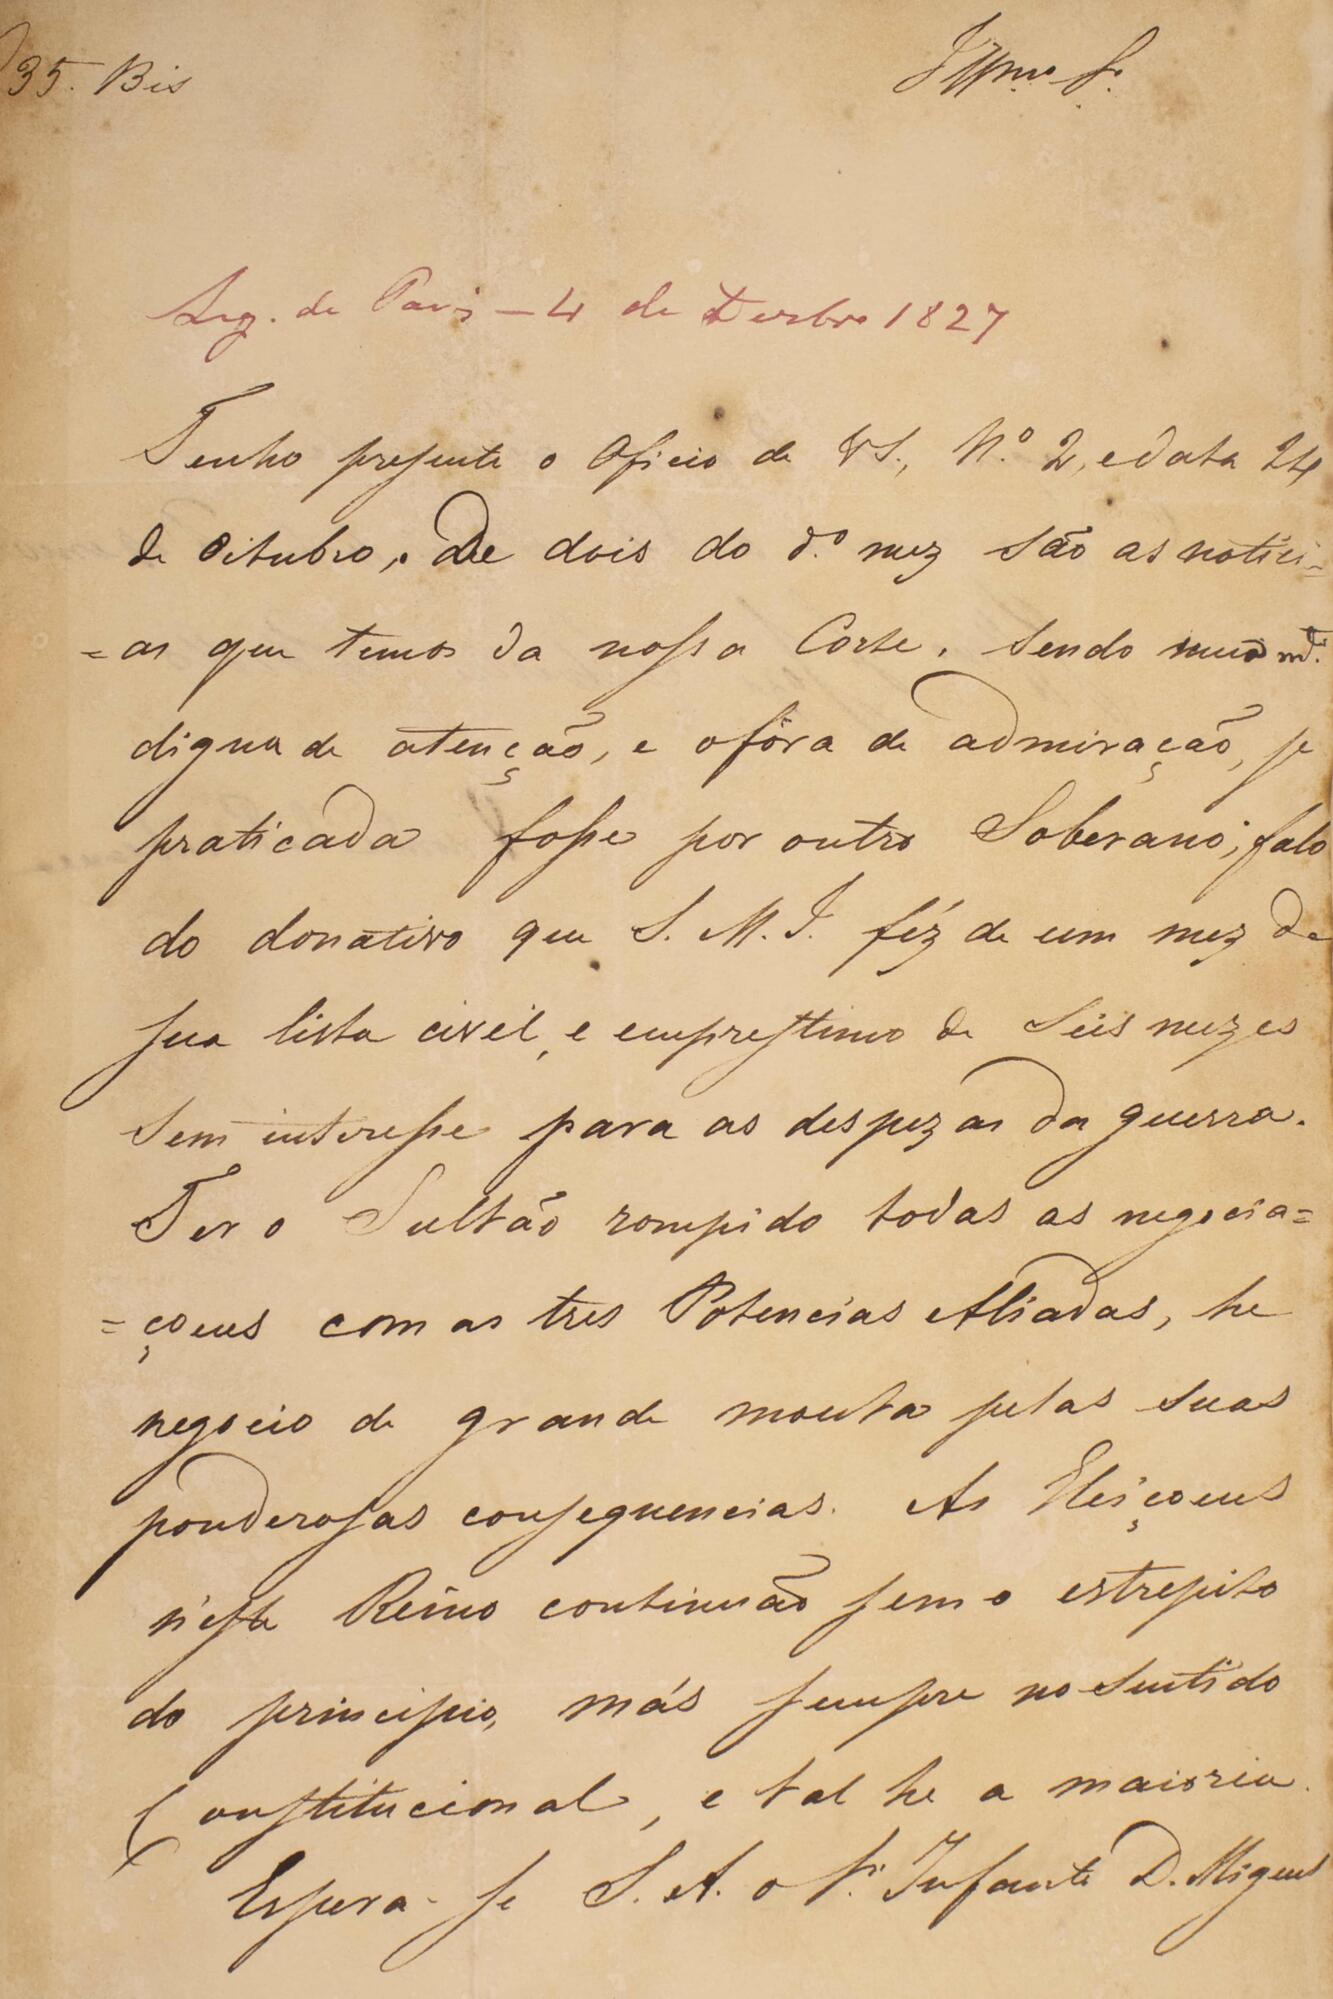 35. Bis
Illmo. Sr.
Leg. de Paris — 4 de Dezbro 1827
Tenho presente o Oficio de V S., N.º 2, e data 24
de Oitubro,. De dois do d.º mez são as notici=
=as que temos da nossa Corte. Sendo
digna de atenção, e o fôra de admiração, se
praticada fosse por outro Soberano; falo
do donativo que S. M. I. féz de um mez de
sua lista civil, e emprestimo de Seis mezes
Sem interesse para as despezas da guerra.
Ter o Sultão rompido todas as negocia=
=çoens com as tres Potencias Aliadas, he
negocio de grande monta pelas suas
ponderosas consequencias. As Eleiçoens
n'este Reino continuão sem o estrepito
do principio, más sempre no Sentido
Constitucional, e tal he a maioria.
Espera-se S. A. o Sr. Infante D. Miguel